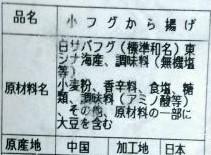 品名 小フグから揚げ
原材料名
白サバフグ(標準和名)東
シナ海産、調味料(無機塩
等)
小麦粉、香辛料、食塩、糖
類、調味料(アミノ酸等)
、その他、原材料の一部に
大豆を含む
原産地 中国 加工地 日本